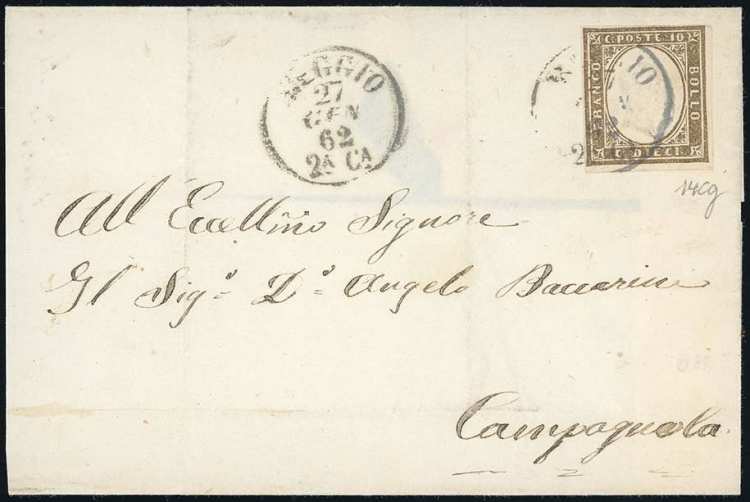 REGGIO
27
GEN
62
2A CA
C. POSTE 10
FRANCO
BOLLO
C. DIECI.
14Cg
All Eccellmo Signore
Il Sigr. Dr. Angelo Baccarini
Campagnola